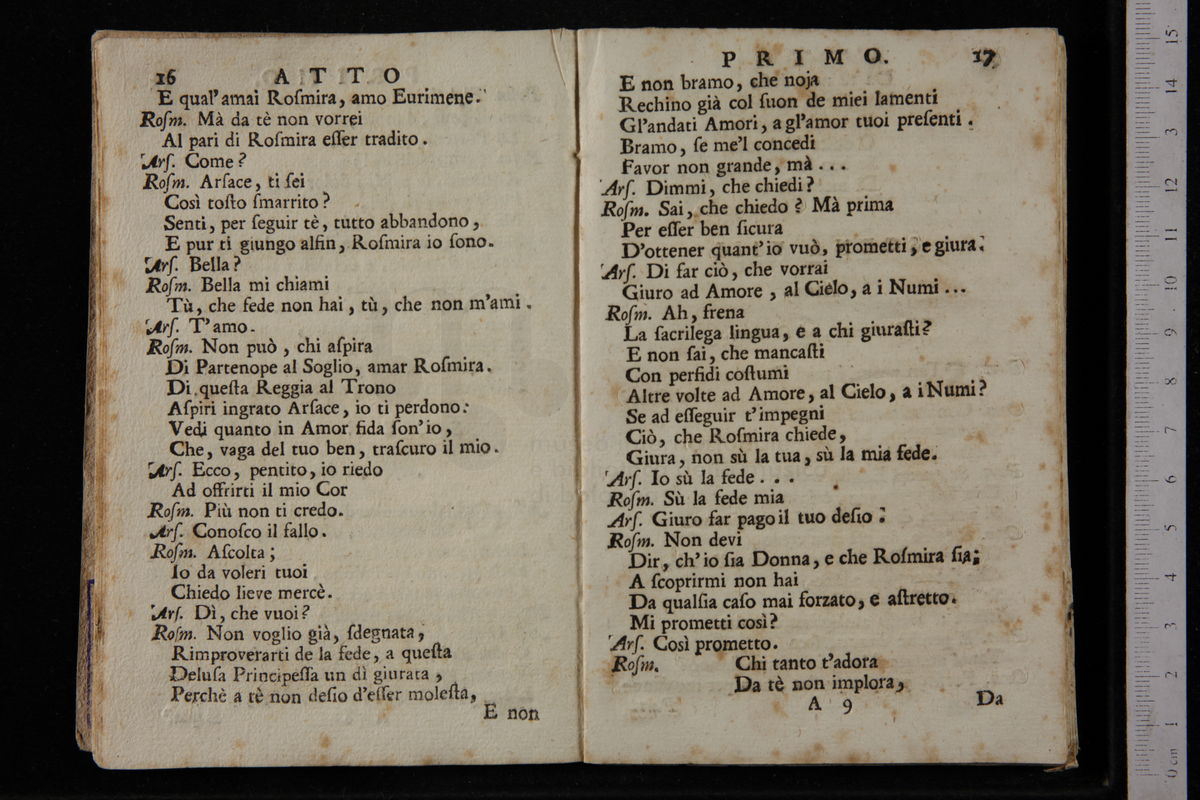 16 ATTO
E qual' amai Roſmira, amo Eurimene.
Roſm. Mà da tè non vorrei
Al pari di Roſmira eſſer tradito.
Arſ. Come?
Roſm. Arſace, ti ſei
Così toſto ſmarrito?
Senti, per ſeguir tè, tutto abbandono,
E pur ti giungo alfin, Roſmira io ſono.
Arſ. Bella?
Roſm. Bella mi chiami
Tù, che fede non hai, tù, che non m'ami.
Arſ. T'amo.
Roſm. Non può, chi aſpira
Di Partenope al Soglio, amar Roſmira.
Di queſta Reggia al Trono
Aſpiri ingrato Arſace, io ti perdono:
Vedi quanto in Amor fida ſon' io,
Che, vaga del tuo ben, traſcuro il mio.
Arſ. Ecco, pentito, io riedo
Ad offrirti il mio Cor
Roſm. Più non ti credo.
Arſ. Conoſco il fallo.
Roſm. Aſcolta;
Io da voleri tuoi
Chiedo lieve mercè.
Arſ. Dì, che vuoi?
Roſm. Non voglio già, ſdegnata,
Rimproverarti de la fede, a queſta
Deluſa Principeſſa un dì giurata,
Perchè a tè non deſio d'eſſer moleſta,
E non
PRIMO. 17
E non bramo, che noja
Rechino già col ſuon de miei lamenti
Gl'andati Amori, a gl'amor tuoi preſenti.
Bramo, ſe me'l concedi
Favor non grande, mà . . .
Arſ. Dimmi, che chiedi?
Roſm. Sai, che chiedo? Mà prima
Per eſſer ben ſicura
D'ottener quant' io vuò, prometti, e giura.
Arſ. Di far ciò, che vorrai
Giuro ad Amore, al Cielo, a i Numi . . .
Roſm. Ah, frena
La ſacrilega lingua, e a chi giuraſti?
E non ſai, che mancaſti
Con perfidi coſtumi
Altre volte ad Amore, al Cielo, a i Numi?
Se ad eſſeguir t'impegni
Ciò, che Roſmira chiede,
Giura, non sù la tua, sù la mia fede.
Arſ. Io sù la fede . . .
Roſm. Sù la fede mia
Arſ. Giuro far pago il tuo deſio.
Roſm. Non devi
Dir, ch' io ſia Donna, e che Roſmira ſia;
A ſcoprirmi non hai
Da qualſia caſo mai forzato, e aſtretto.
Mi prometti così?
Arſ. Così prometto.
Roſm. Chi tanto t'adora
Da tè non implora,
A 9 Da